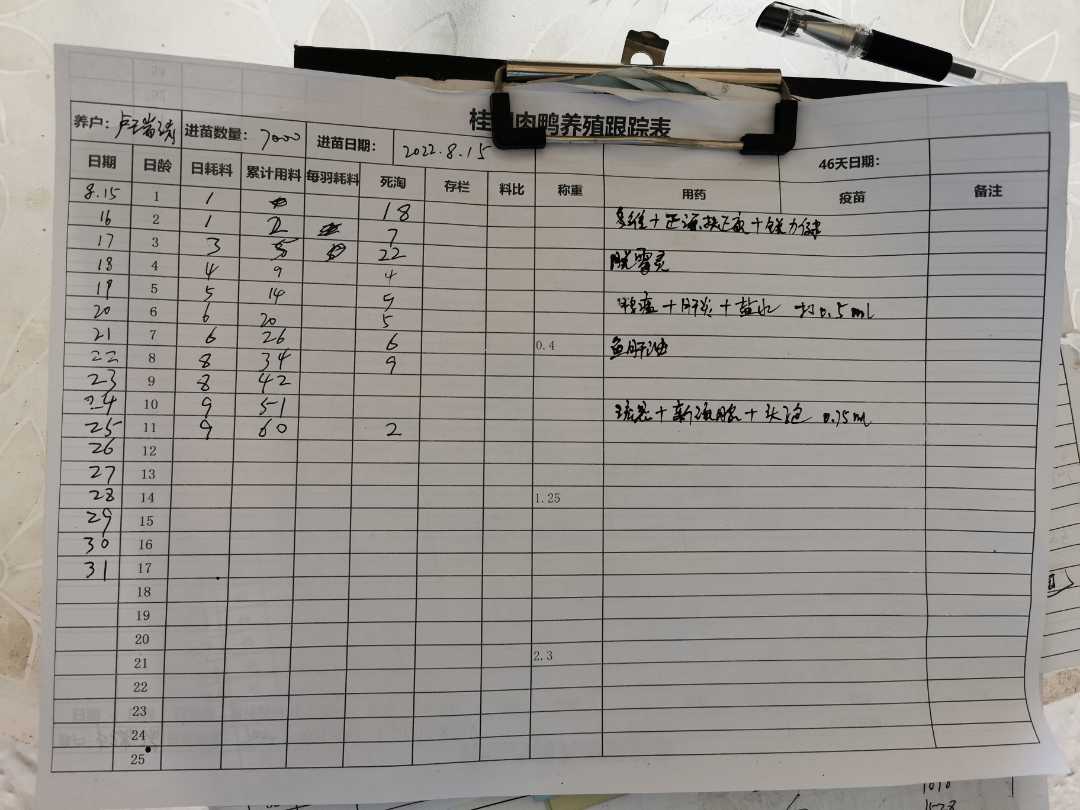 肉鸭养殖跟踪表
养户： 进苗数量： 7000 进苗日期： 2022.8.15 46天日期：
日期 日龄 日耗料 累计用料 每羽耗料 死淘 存栏 料比 称重 用药 疫苗 备注
8.15 1 1 18
16 2 1 2 7
17 3 3 5 22 脱霉灵
18 4 4 9 4
19 5 5 14 9 + 肝炎 + 盐水 0.5ml
20 6 6 20 5
21 7 6 26 6 0.4 鱼肝油
22 8 8 34 9
23 9 8 42
24 10 9 51 0.75ml
25 11 9 60 2
26 12
27 13
28 14 1.25
29 15
30 16
31 17
18
19
20
21 2.3
22
23
24
25